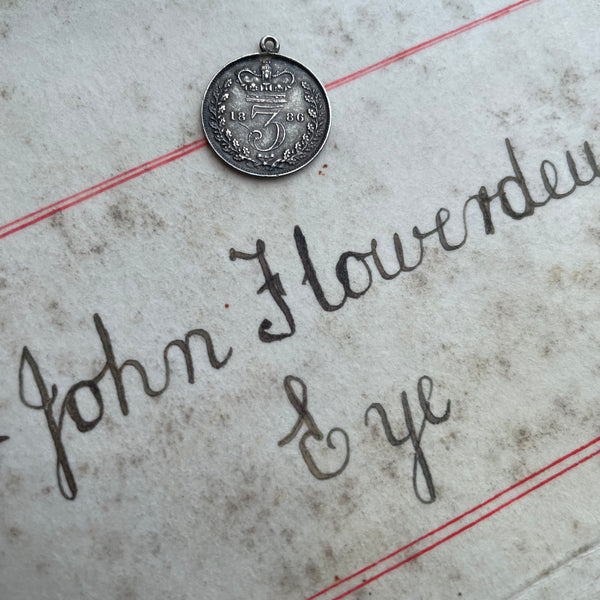 18 3 86
John Flowerdew
Eye